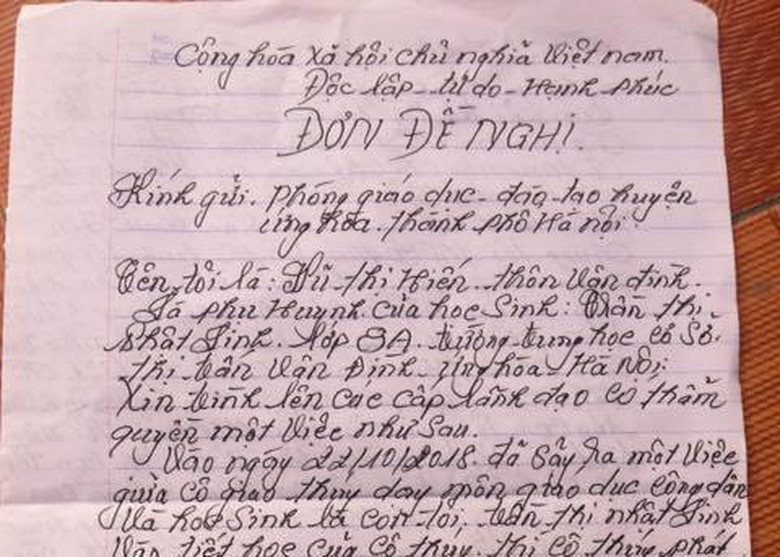 Cộng hóa xã hội chủ nghĩa Việt nam.
Độc lập - tự do - Hạnh phúc
ĐƠN ĐỀ NGHỊ.
Kính gửi. phòng giáo dục - đào tạo huyện
ứng hòa. thành phố Hà nội.
Tên tôi là: Vũ thị Hiến. thôn Vân đình.
Là phụ Huynh của học Sinh: Trần thị
Nhật Linh. lớp 8A. trường trung học cơ Sở.
thị trấn Vân Đình. ứng hòa - Hà Nội.
Xin trình lên các cấp lãnh đạo có thẩm
quyền một Việc như Sau.
Vào ngày 22/10/2018. đã Sẩy ra một Việc
giữa cô giáo thủy dạy môn giáo dục Công dân
Và học Sinh là con tôi. trần thị nhật Linh
Vào tiết học của cô thủy. thì cô thủy phát